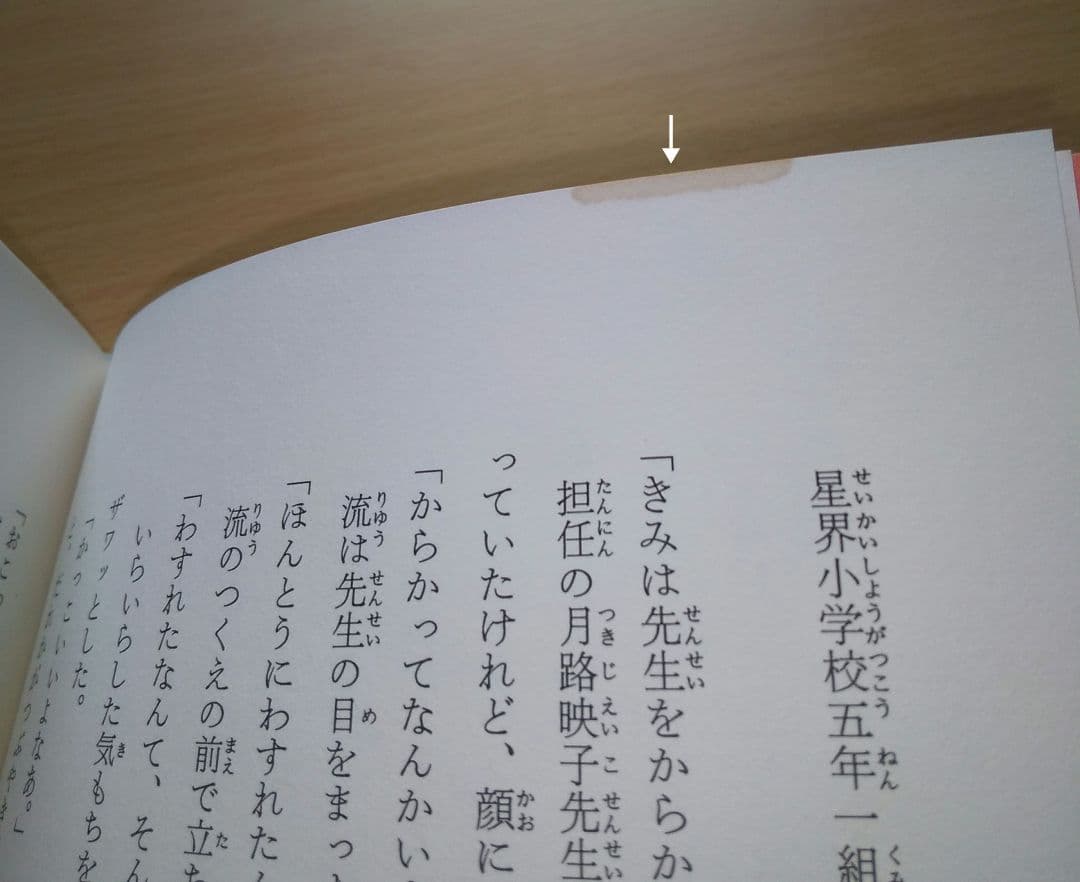 星界小学校五年一組
「きみは先生をからか
担任の月路映子先生
っていたけれど、顔に
「からかってなんかい
流は先生の目をまっ
「ほんとうにわすれた
流のつくえの前で立
「わすれたなんて、そん
いらいらした気もちを
ザワッとした。
「かっこいいよなあ。」